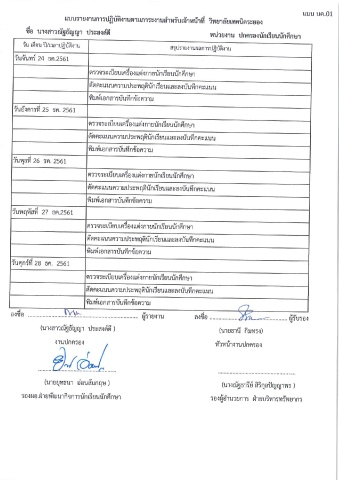 แบบ บค.01
แบบรายงานการปฏิบัติงานตามภาระงานสำหรับเจ้าหน้าที่ วิทยาลัยเทคนิคระยอง
ชื่อ นางสาวณัฐธัญญา ประสงค์ดี หน่วยงาน ปกครองนักเรียนนักศึกษา
วัน เดือน ปี/เวลาปฏิบัติงาน สรุปรายงานผลการปฏิบัติงาน
วันจันทร์ 24 ธค.2561
ตรวจระเบียบเครื่องแต่งกายนักเรียนนักศึกษา
ตัดคะแนนความประพฤตินักเรียนและลงบันทึกคะแนน
พิมพ์เอกสารบันทึกข้อความ
วันอังคารที่ 25 ธค.2561
ตรวจระเบียบเครื่องแต่งกายนักเรียนนักศึกษา
ตัดคะแนนความประพฤตินักเรียนและลงบันทึกคะแนน
พิมพ์เอกสารบันทึกข้อความ
วันพุธที่ 26 ธค.2561
ตรวจระเบียบเครื่องแต่งกายนักเรียนนักศึกษา
ตัดคะแนนความประพฤตินักเรียนและลงบันทึกคะแนน
พิมพ์เอกสารบันทึกข้อความ
วันพฤหัสที่ 27 ธค.2561
ตรวจระเบียบเครื่องแต่งกายนักเรียนนักศึกษา
ตัดคะแนนความประพฤตินักเรียนและลงบันทึกคะแนน
พิมพ์เอกสารบันทึกข้อความ
วันศุกร์ที่ 28 ธค. 2561
ตรวจระเบียบเครื่องแต่งกายนักเรียนนักศึกษา
ตัดคะแนนความประพฤตินักเรียนและลงบันทึกคะแนน
พิมพ์เอกสารบันทึกข้อความ
ลงชื่อ ผู้รายงาน ลงชื่อ ผู้รับรอง
(นางสาวณัฐธัญญา ประสงค์ดี )
งานปกครอง หัวหน้างานปกครอง
(นายยุทธนา อ่อนสัมกฤษ )
รองผอ.ฝ่ายพัฒนากิจการนักเรียนนักศึกษา รองผู้อำนวยการ ฝ่ายบริหารทรัพยากร